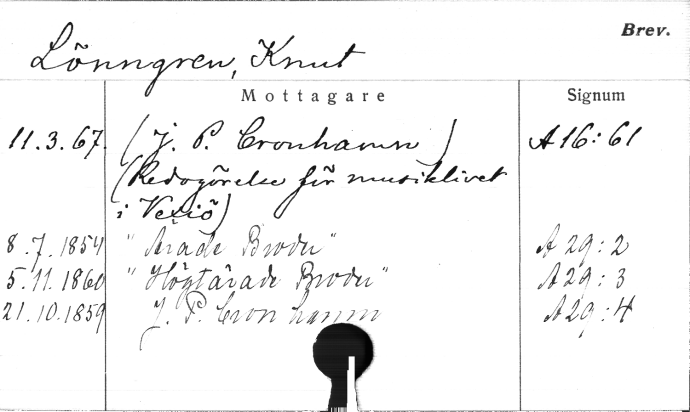 Brev.
Lönngren, Knut
Mottagare Signum
11.3.67. (J. P. Cronhamn) A16:61
(Redogörelse för musiklivet
i Vexiö)
8.7.1854 "Ärade Broder" A29:2
5.11.1860 "Högtärade Broder" A29:3
21.10.1859 J. P. Cronhamn A29:4